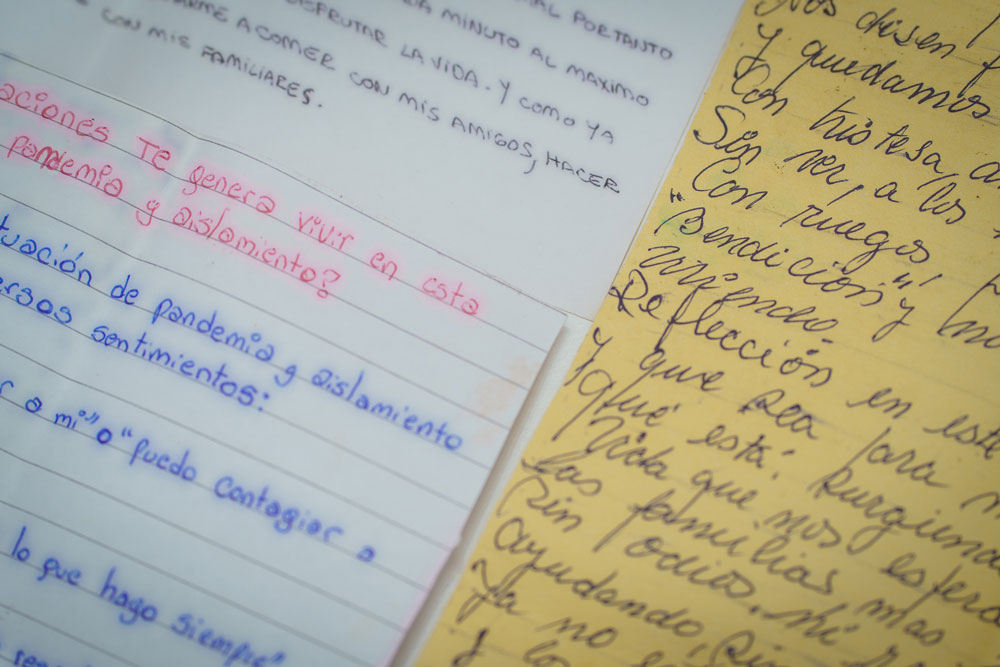 MAL PORTANTO
MINUTO AL MAXIMO
DISFRUTAR LA VIDA. Y COMO YA
A COMER CON MIS AMIGOS, HACER
CON MIS FAMILIARES.
aciones Te genera vivir en esta
pandemia y aislamiento?
tuación de pandemia y aislamiento
ersos sentimientos:
a mi" o "puedo contagiar a
lo que hago siempre"
Nos disen
y quedamos
Con tristesa,
Sin ver, a los
Con ruegos
"Bendición" y
viviendo
Reflección en este
y que sea para
¡que está! surguna
Vida que nos espera
las familias mas
Sin odios. ni
ayudando, sin
Ya no
y los